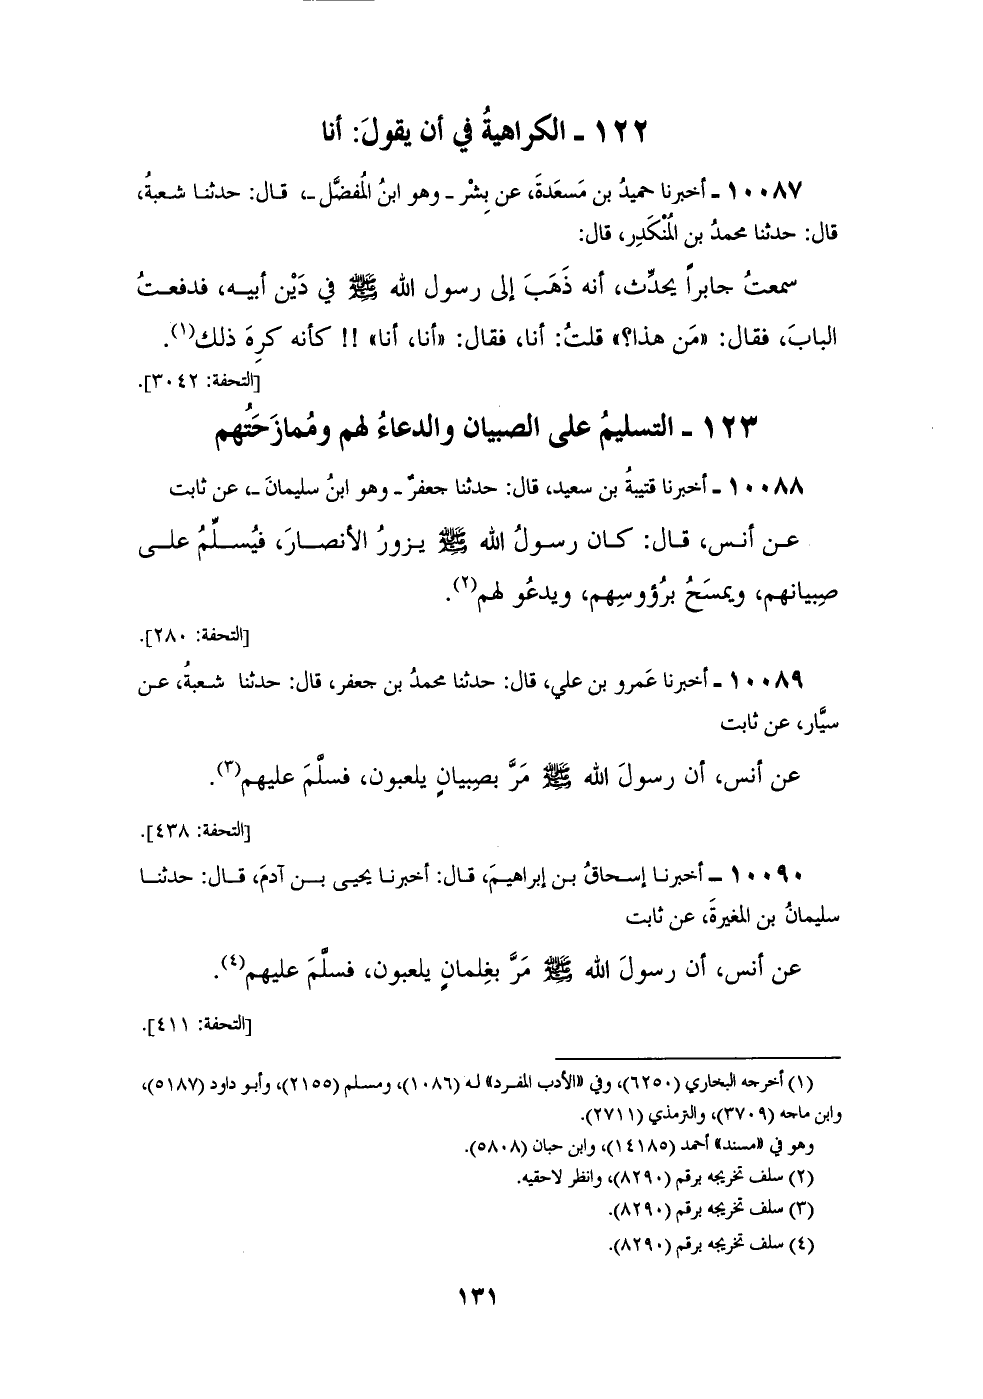 ١٢٢ ـ الكراهيةُ في أن يقولَ: أنا
١٠٠٨٧ ـ أخبرنا حميدُ بن مَسعَدةَ، عن بِشْر ـ وهو ابنُ المُفضَّل ـ، قال: حدثنا شعبةُ،
قال: حدثنا محمدُ بن المُنْكَدِر، قال:
سمعتُ جابراً يحدِّث، أنه ذَهَبَ إلى رسول الله ﷺ في دَيْن أبيه، فدفعتُ
البابَ، فقال: «مَن هذا؟» قلتُ: أنا، فقال: «أنا، أنا» !! كأنه كرِهَ ذلك(١).
[التحفة: ٣٠٤٢].
١٢٣ ـ التسليمُ على الصبيان والدعاءُ لهم ومُمازَحَتُهم
١٠٠٨٨ ـ أخبرنا قتيبةُ بن سعيد، قال: حدثنا جعفرٌ ـ وهو ابنُ سليمانَ ـ، عن ثابت
عن أنس، قال: كان رسولُ الله ﷺ يزورُ الأنصارَ، فيُسلِّمُ على
صِبيانهم، ويمسَحُ برُؤوسِهم، ويدعُو لهم(٢).
[التحفة: ٢٨٠].
١٠٠٨٩ ـ أخبرنا عَمرو بن علي، قال: حدثنا محمدُ بن جعفر، قال: حدثنا شعبةُ، عن
سيَّار، عن ثابت
عن أنس، أن رسولَ الله ﷺ مَرَّ بصِبيانٍ يلعبون، فسلَّمَ عليهم(٣).
[التحفة: ٤٣٨].
١٠٠٩٠ ـ أخبرنا إسحاقُ بن إبراهيمَ، قال: أخبرنا يحيى بن آدمَ، قال: حدثنا
سليمانُ بن المغيرةَ، عن ثابت
عن أنس، أن رسولَ الله ﷺ مَرَّ بغِلمانٍ يلعبون، فسلَّمَ عليهم(٤).
[التحفة: ٤١١].
(١) أخرجه البخاري (٦٢٥٠)، وفي «الأدب المفرد» له (١٠٨٦)، ومسلم (٢١٥٥)، وأبو داود (٥١٨٧)،
وابن ماجه (٣٧٠٩)، والترمذي (٢٧١١).
وهو في «مسند» أحمد (١٤١٨٥)، وابن حبان (٥٨٠٨).
(٢) سلف تخريجه برقم (٨٢٩٠)، وانظر لاحقيه.
(٣) سلف تخريجه برقم (٨٢٩٠).
(٤) سلف تخريجه برقم (٨٢٩٠).
١٣١